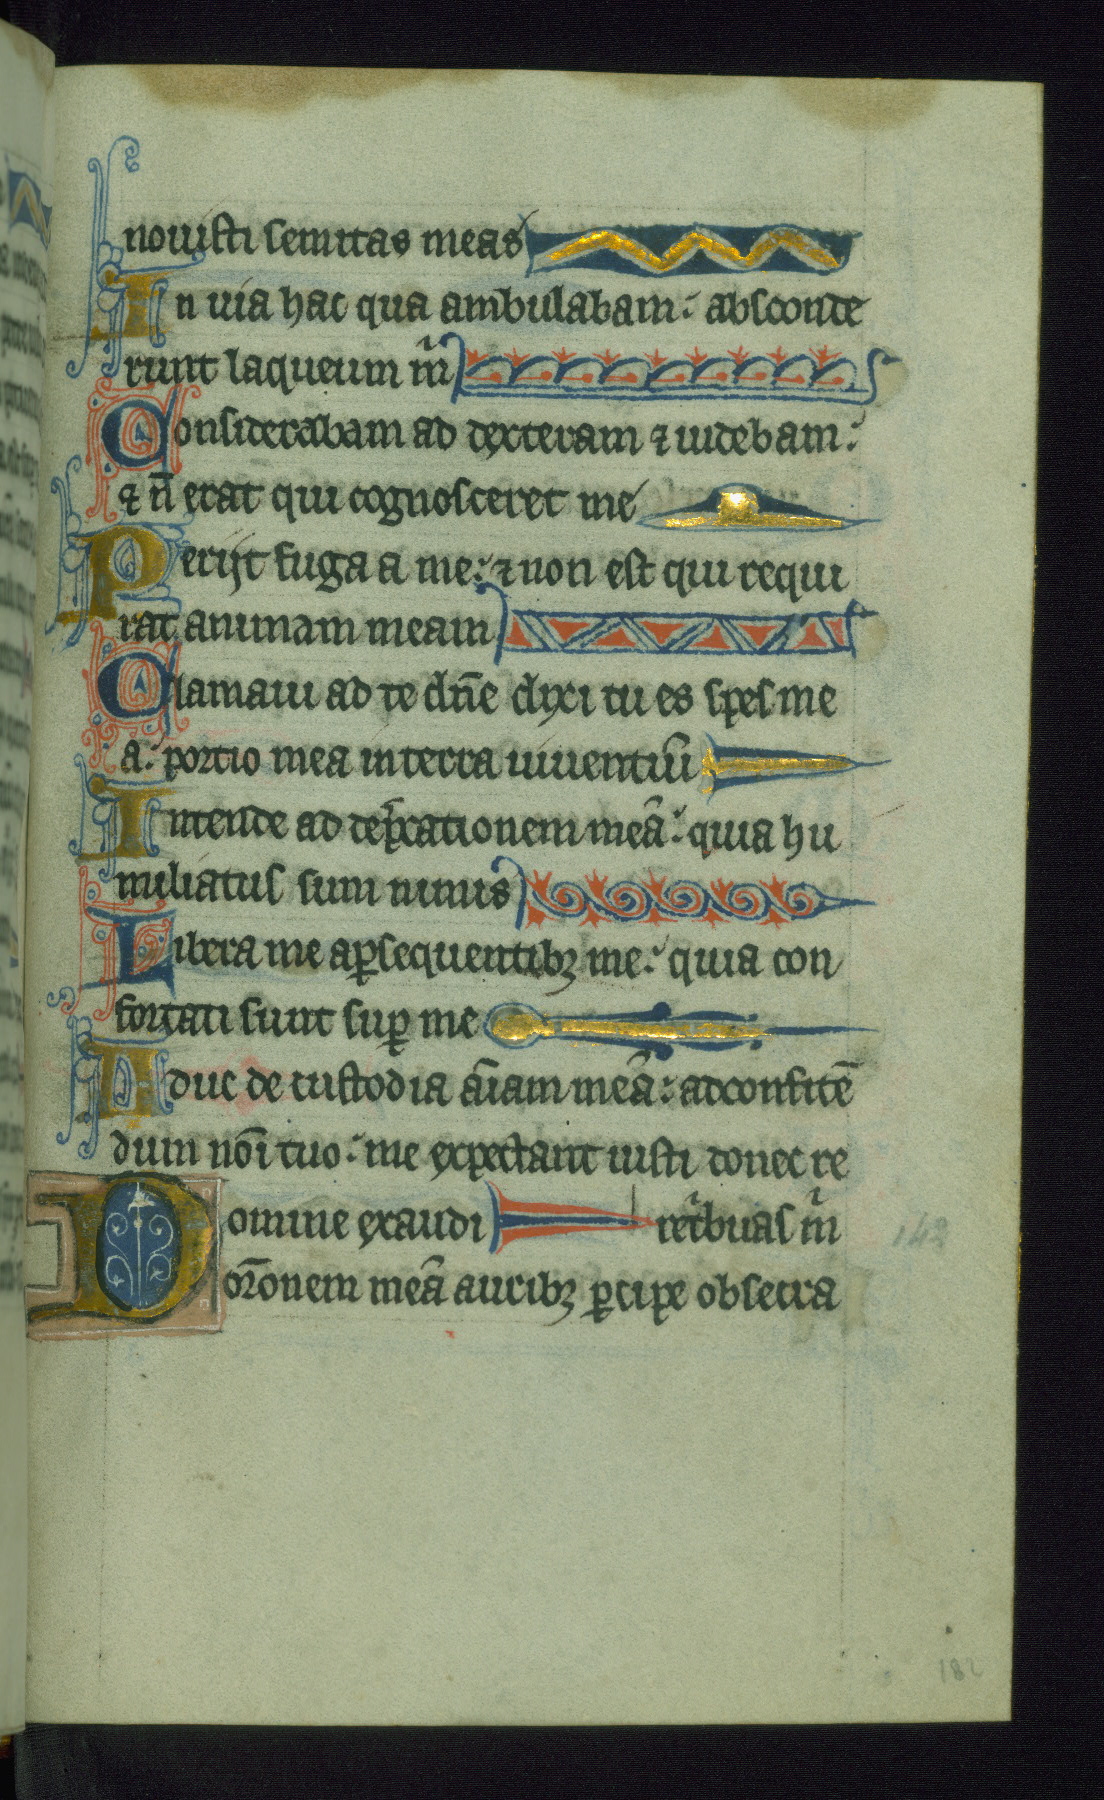 nouisti semitas meas
In uia hac qua ambulabam: absconde
runt laqueum m̃
Considerabam ad dexteram ⁊ uidebam:
⁊ ñ erat qui cognosceret me
Perijt fuga a me: ⁊ non est qui requi
rat animam meam
Clamaui ad te dñe dixi tu es spes me
a: portio mea in terra uiuentiũ
Intende ad dep̃cationem meã: quia hu
miliatus sum nimis
Libera me a ꝑsequentibꝫ me: quia con
fortati sunt suꝑ me
Educ de custodia aĩam meã: ad confitẽ
dum nõi tuo: me expectant iusti donec re
Domine exaudi
retˀbuas m̃
orõonem meã auribꝫ ꝑcipe obsecra
142
182